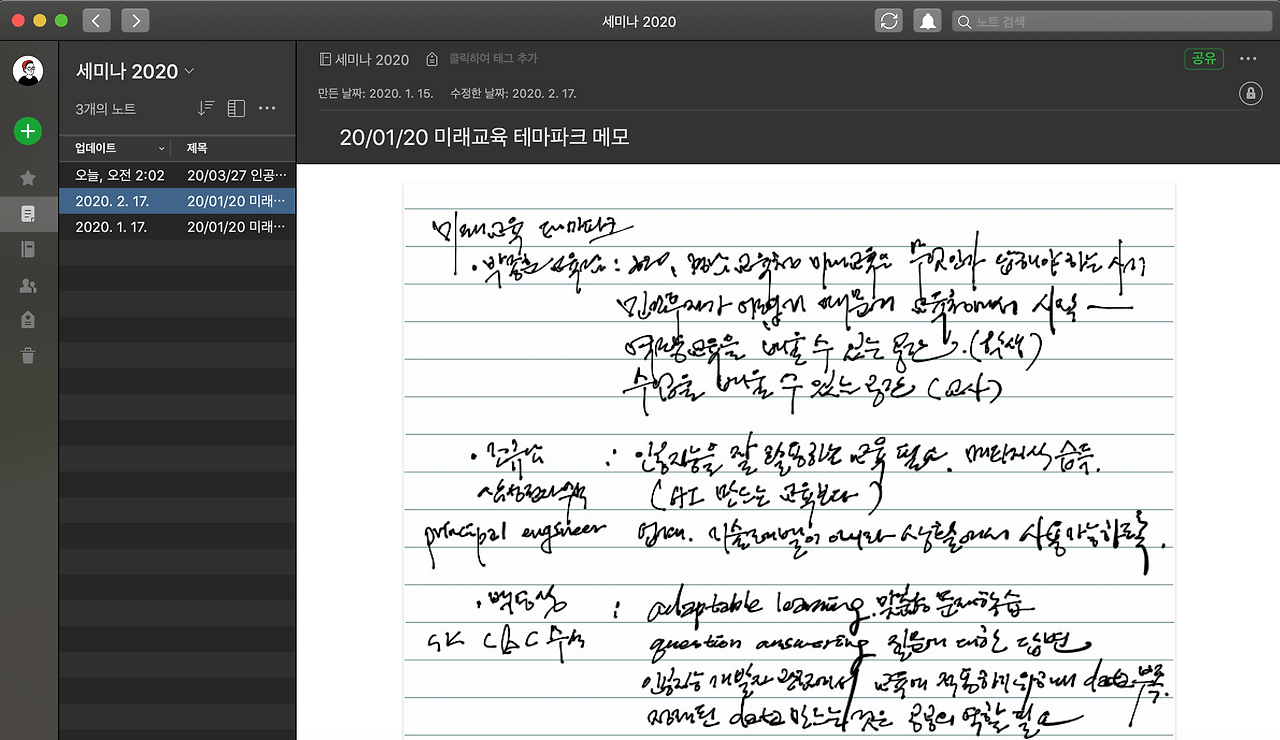 세미나 2020
노트 검색
세미나 2020
3개의 노트
업데이트 제목
오늘, 오전 2:02 20/03/27 인공…
2020. 2. 17. 20/01/20 미래…
2020. 1. 17. 20/01/20 미래…
세미나 2020 클릭하여 태그 추가
공유
만든 날짜: 2020. 1. 15. 수정한 날짜: 2020. 2. 17.
20/01/20 미래교육 테마파크 메모
미래교육 테마파크
미래교육은 무엇인가 답해야 하는 시기
어렵기 때문에 교육청에서 시작
교육을 배울 수 있는 공간. (학생)
수업을 배울 수 있는 공간 (교사)
인공지능을 잘 활용하는 교육 필요. 습득.
삼성전자 수석 (AI 만드는 교육보다)
principal engineer 기술개발이 아니라 사용가능하도록.
: adaptable learning. 맞춤형 문제학습
SK C&C 수석 question answering 질문에 대한 답변
인공지능 개발자 관점에서 교육에 적용하기 위해 data 부족.
정제된 data 만드는 것은 공공의 역할 필요